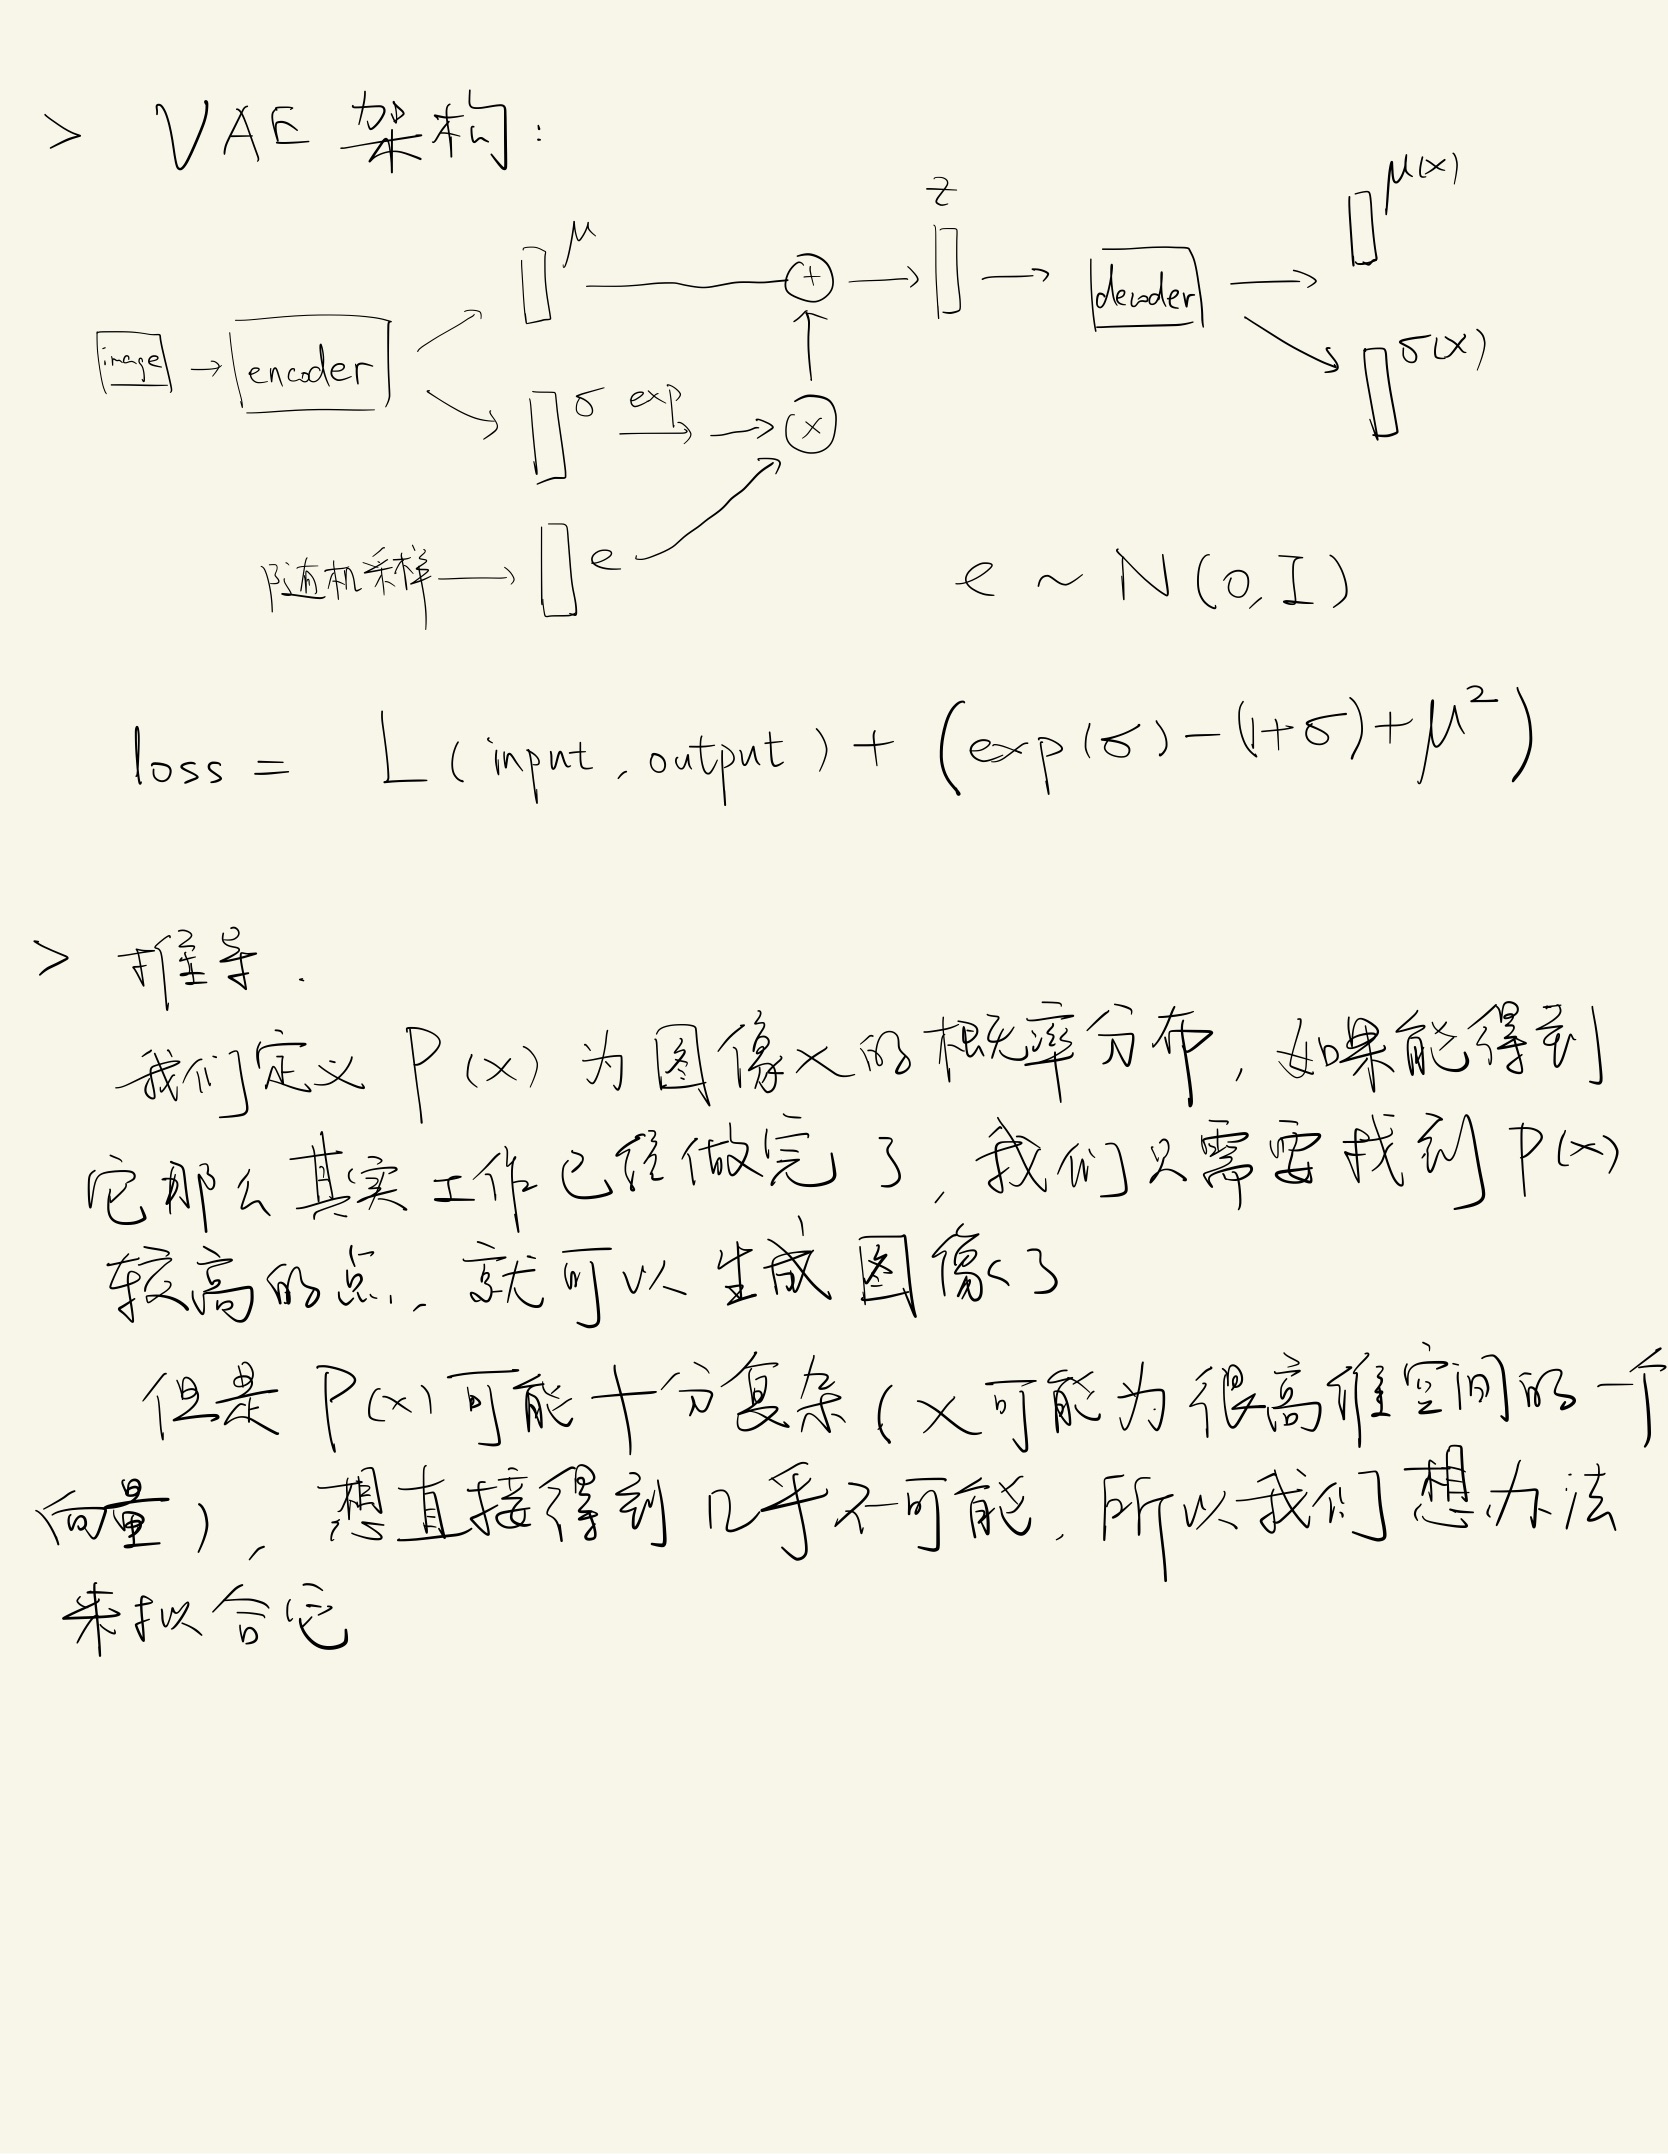 > VAE 架构:
z
μ(x)
μ
+
decoder
image
encoder
σ(x)
σ exp
×
随机采样
e
e ~ N(0, I)
loss = L(input, output) + (exp(σ) - (1+σ) + μ²)
> 推导.
我们定义 P(x) 为图像x的概率分布, 如果能得到
它那么其实工作已经做完了, 我们只需要找到 P(x)
较高的点, 就可以生成图像了
但是 P(x) 可能十分复杂 (x可能为很高维空间的一个
向量), 想直接得到几乎不可能, 所以我们想办法
来拟合它